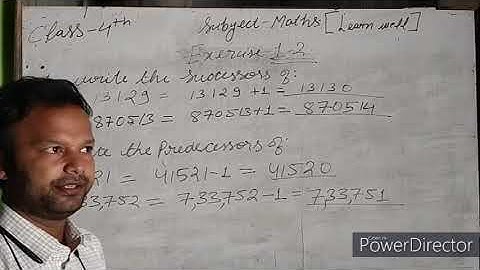 Class-4th Subject-Maths [Learn well]
Exercise 1.2
write the Successors of:
13129 = 13129 +1 = 13130
870513 = 870513+1 = 870514
the Predecessors of
21 = 41521-1 = 41520
33,752 = 7,33,752-1 = 7,33,751
PowerDirector